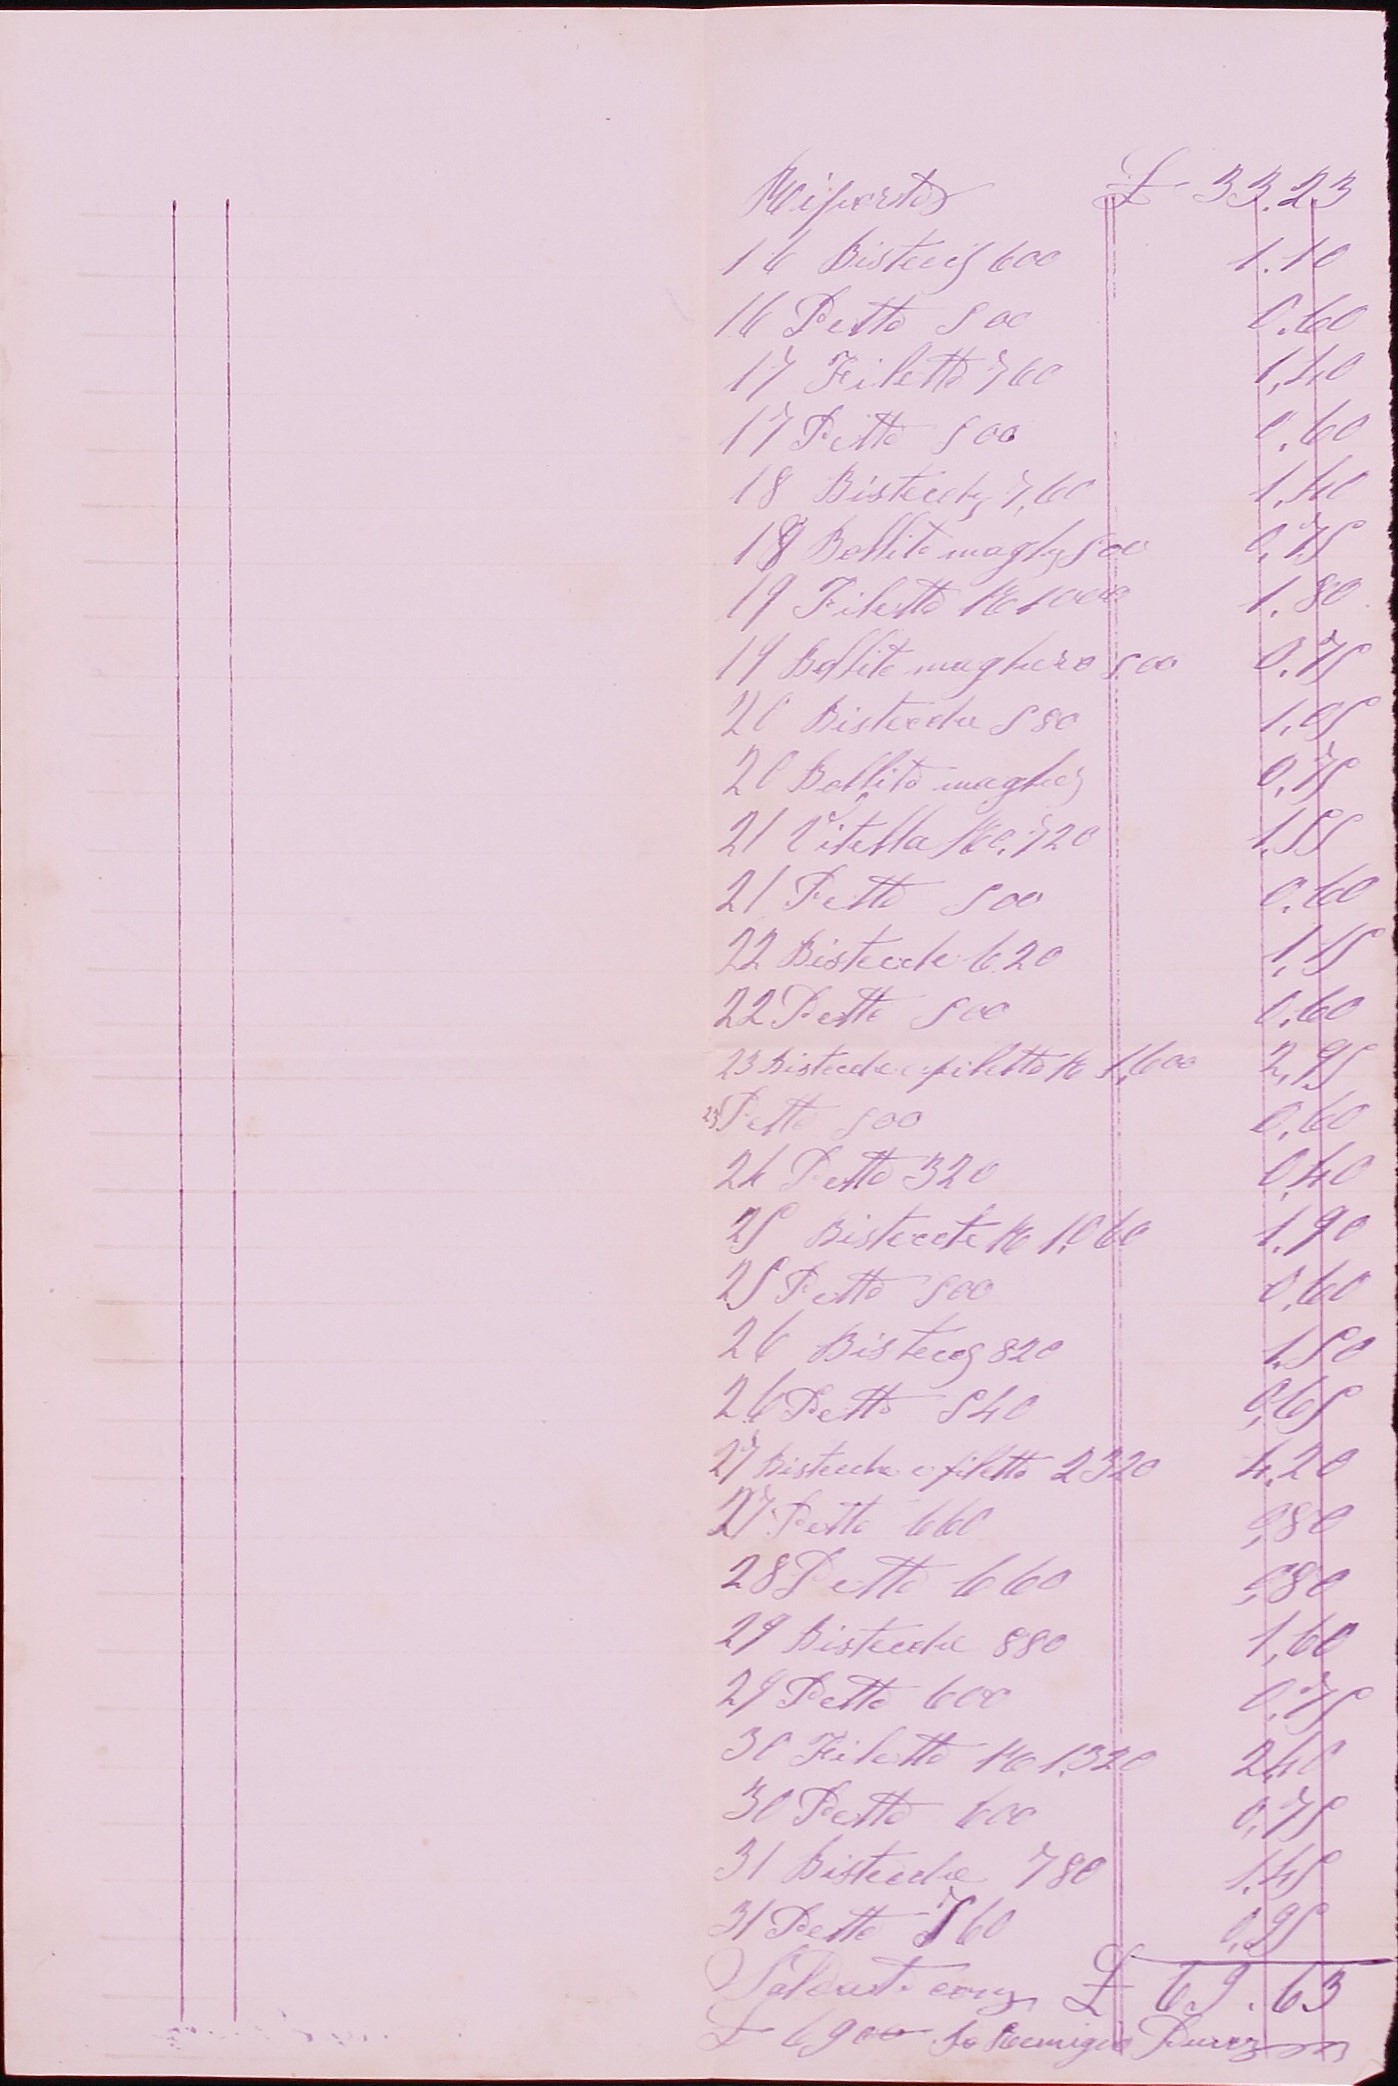 Riporto £ 33.23
16 Bistecc 600 1.10
16 Petto 500 0.60
17 Filetto 760 1,40
17 Petto 500 0.60
18 Bistecch 7,60 1,40
18 Bollito magh 500 0,75
19 Filetto K 1000 1.80
19 Bollito maghero 500 0.75
20 Bistecche 580 1,05
20 Bollito magh 0,75
21 Vitella K 0.720 1,55
21 Petto 500 0.60
22 Bistecche 620 1,15
22 Petto 500 0.60
23 Bistecche e filetto K 1,600 2,95
23 Petto 500 0,60
24 Petto 320 0,40
25 Bistecche K 1.060 1.90
25 Petto 500 0,60
26 Bistecc 820 1.50
26 Petto 540 0,65
27 Bistecche e filetto 2320 4,20
27 Petto 660 0,80
28 Petto 660 0,80
29 Bistecche 880 1,60
29 Petto 600 0,75
30 Filetto K 1.320 2,40
30 Petto 600 0,75
31 Bistecche 780 1,45
31 Petto 760 0,95
Saldato con £ 69.63
£ 6900 Remigio